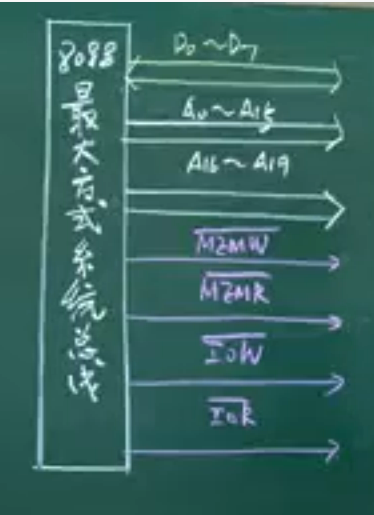 8088
最大方式系统总线
D0～D7
A0～A15
A16～A19
MEMW
MEMR
IOW
IOR